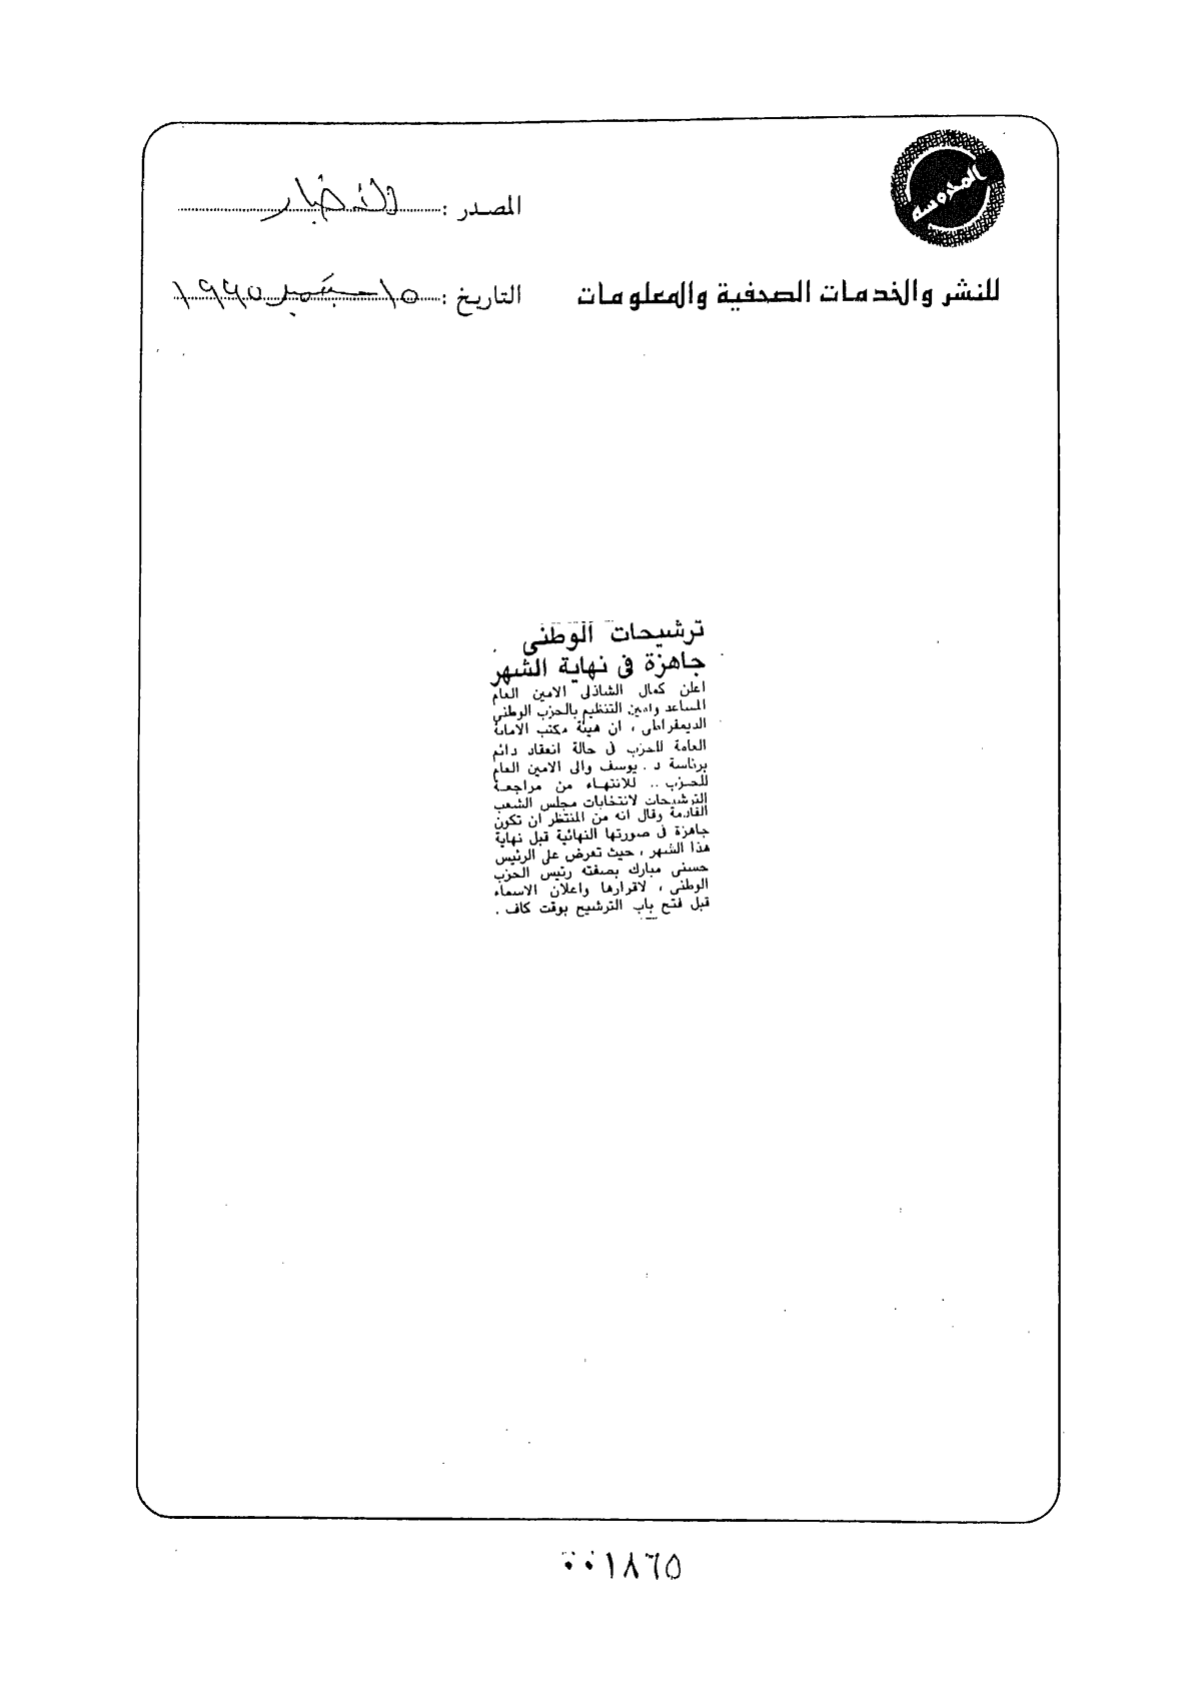 المحروسة
المصدر : الأخبار
للنشر والخدمات الصحفية والمعلومات
التاريخ : ١٥ سبتمبر ١٩٩٥
ترشيحات الوطنى
جاهزة فى نهاية الشهر
اعلن كمال الشاذلى الامين العام
المساعد وامين التنظيم بالحزب الوطنى
الديمقراطى ، ان هيئة مكتب الامانة
العامة للحزب فى حالة انعقاد دائم
برئاسة د . يوسف والى الامين العام
للحزب .. للانتهاء من مراجعة
الترشيحات لانتخابات مجلس الشعب
القادمة وقال انه من المنتظر ان تكون
جاهزة فى صورتها النهائية قبل نهاية
هذا الشهر ، حيث تعرض على الرئيس
حسنى مبارك بصفته رئيس الحزب
الوطنى ، لاقرارها واعلان الاسماء
قبل فتح باب الترشيح بوقت كاف .
٠٠١٨٦٥